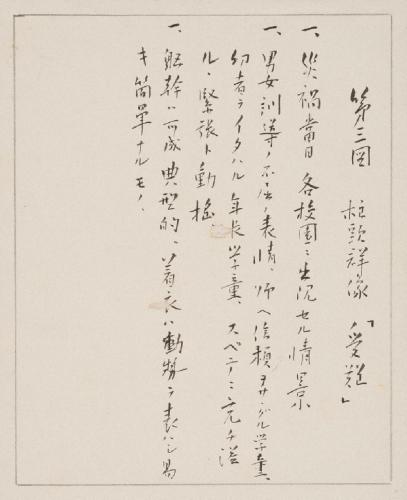 第三図 柱頭群像「受難」
一、災禍當日各校園ニ出現セル情景
一、男女訓導ノ不屈ノ表情、師ヘ信頼ヲササグル学童、
幼者ヲイタハル年長学童、スベテニ充チ溢
ルル緊張ト動揺
一、躯幹ハ可成典型的、着衣ハ動勢ヲ表ハシ易
キ簡単ナルモノ、